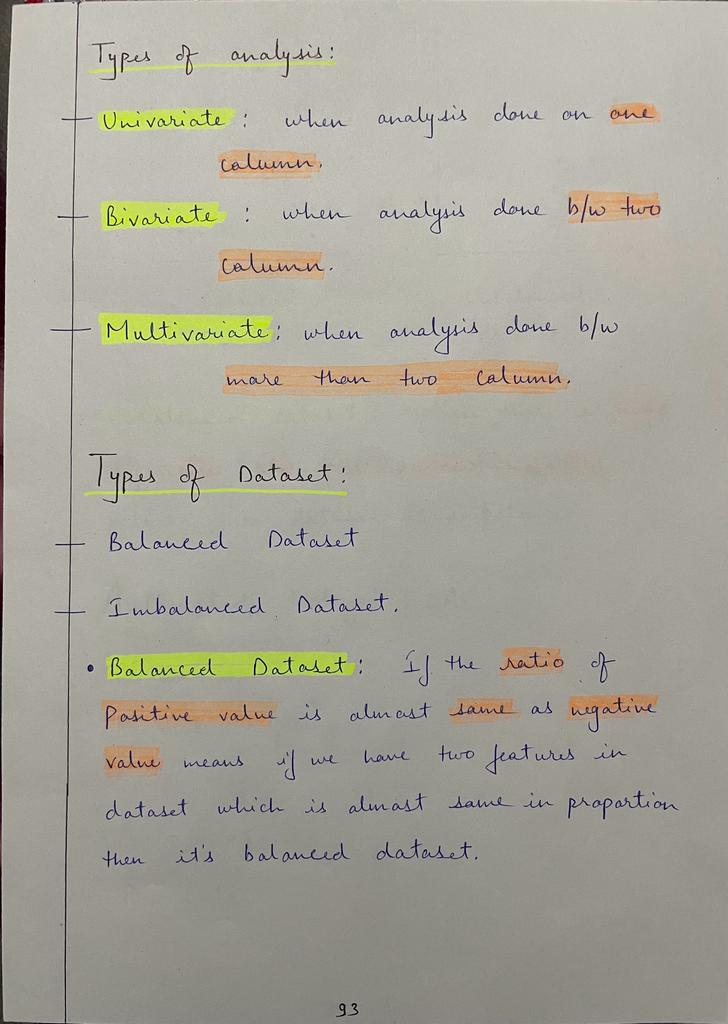 Types of analysis:
Univariate: when analysis done on one
column.
Bivariate : when analysis done b/w two
column.
Multivariate: when analysis done b/w
more than two column.
Types of Dataset:
Balanced Dataset
Imbalanced Dataset.
• Balanced Dataset: If the ratio of
Positive value is almost same as negative
value means if we have two features in
dataset which is almost same in proportion
then it's balanced dataset.
93